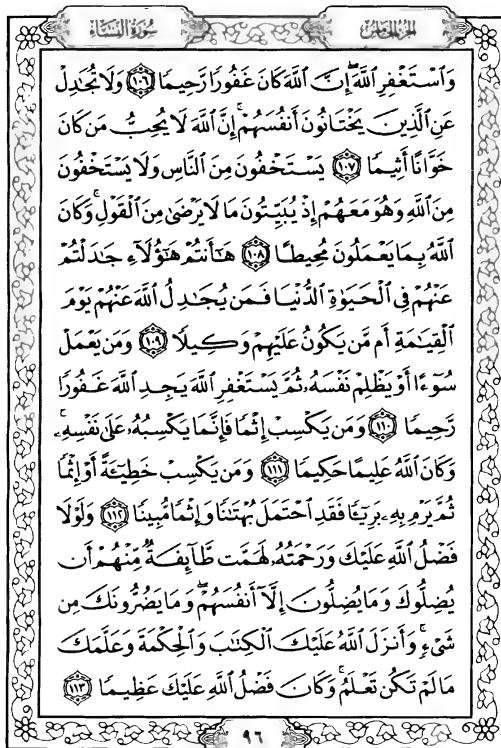 الجزء الخامس
سورة النساء
وَاسْتَغْفِرِ اللَّهَ ۖ إِنَّ اللَّهَ كَانَ غَفُورًا رَّحِيمًا ١٠٦ وَلَا تُجَادِلْ
عَنِ الَّذِينَ يَخْتَانُونَ أَنفُسَهُمْ ۚ إِنَّ اللَّهَ لَا يُحِبُّ مَن كَانَ
خَوَّانًا أَثِيمًا ١٠٧ يَسْتَخْفُونَ مِنَ النَّاسِ وَلَا يَسْتَخْفُونَ
مِنَ اللَّهِ وَهُوَ مَعَهُمْ إِذْ يُبَيِّتُونَ مَا لَا يَرْضَىٰ مِنَ الْقَوْلِ ۚ وَكَانَ
اللَّهُ بِمَا يَعْمَلُونَ مُحِيطًا ١٠٨ هَٰأَنتُمْ هَٰؤُلَاءِ جَٰدَلْتُمْ
عَنْهُمْ فِي الْحَيَوٰةِ الدُّنْيَا فَمَن يُجَٰدِلُ اللَّهَ عَنْهُمْ يَوْمَ
الْقِيَٰمَةِ أَم مَّن يَكُونُ عَلَيْهِمْ وَكِيلًا ١٠٩ وَمَن يَعْمَلْ
سُوءًا أَوْ يَظْلِمْ نَفْسَهُۥ ثُمَّ يَسْتَغْفِرِ اللَّهَ يَجِدِ اللَّهَ غَفُورًا
رَّحِيمًا ١١٠ وَمَن يَكْسِبْ إِثْمًا فَإِنَّمَا يَكْسِبُهُۥ عَلَىٰ نَفْسِهِۦ ۚ
وَكَانَ اللَّهُ عَلِيمًا حَكِيمًا ١١١ وَمَن يَكْسِبْ خَطِيٓـَٔةً أَوْ إِثْمًا
ثُمَّ يَرْمِ بِهِۦ بَرِيٓـًٔا فَقَدِ احْتَمَلَ بُهْتَٰنًا وَإِثْمًا مُّبِينًا ١١٢ وَلَوْلَا
فَضْلُ اللَّهِ عَلَيْكَ وَرَحْمَتُهُۥ لَهَمَّت طَّآئِفَةٌ مِّنْهُمْ أَن
يُضِلُّوكَ وَمَا يُضِلُّونَ إِلَّآ أَنفُسَهُمْ ۖ وَمَا يَضُرُّونَكَ مِن
شَىْءٍ ۚ وَأَنزَلَ اللَّهُ عَلَيْكَ الْكِتَٰبَ وَالْحِكْمَةَ وَعَلَّمَكَ
مَا لَمْ تَكُن تَعْلَمُ ۚ وَكَانَ فَضْلُ اللَّهِ عَلَيْكَ عَظِيمًا ١١٣
٩٦